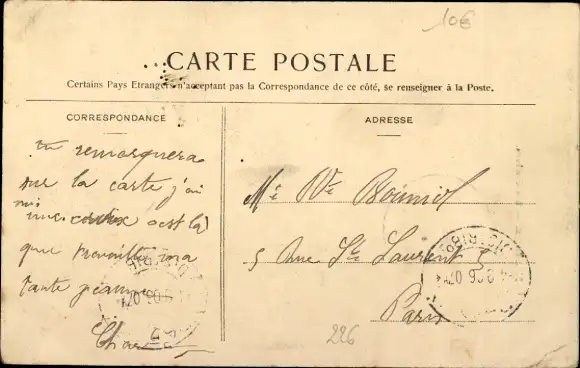 10€
CARTE POSTALE
Certains Pays Etrangers n'acceptant pas la Correspondance de ce côté, se renseigner à la Poste.
CORRESPONDANCE
ADRESSE
tu remarquera
sur la carte j'ai
mi une croix c'est la
que travaille ma
tante
Mr Ve Bouniol
5 Rue St Laurent 5
Paris
226